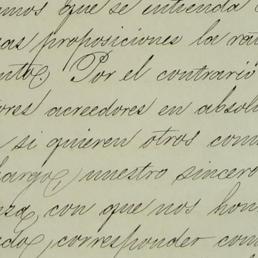 mos que se entienda
as proposiciones la ra
nto. Por el contrario
ores acreedores en absol
si quieren otros com
bargo, nuestro sincero
nza, con que nos hon
do, corresponder com